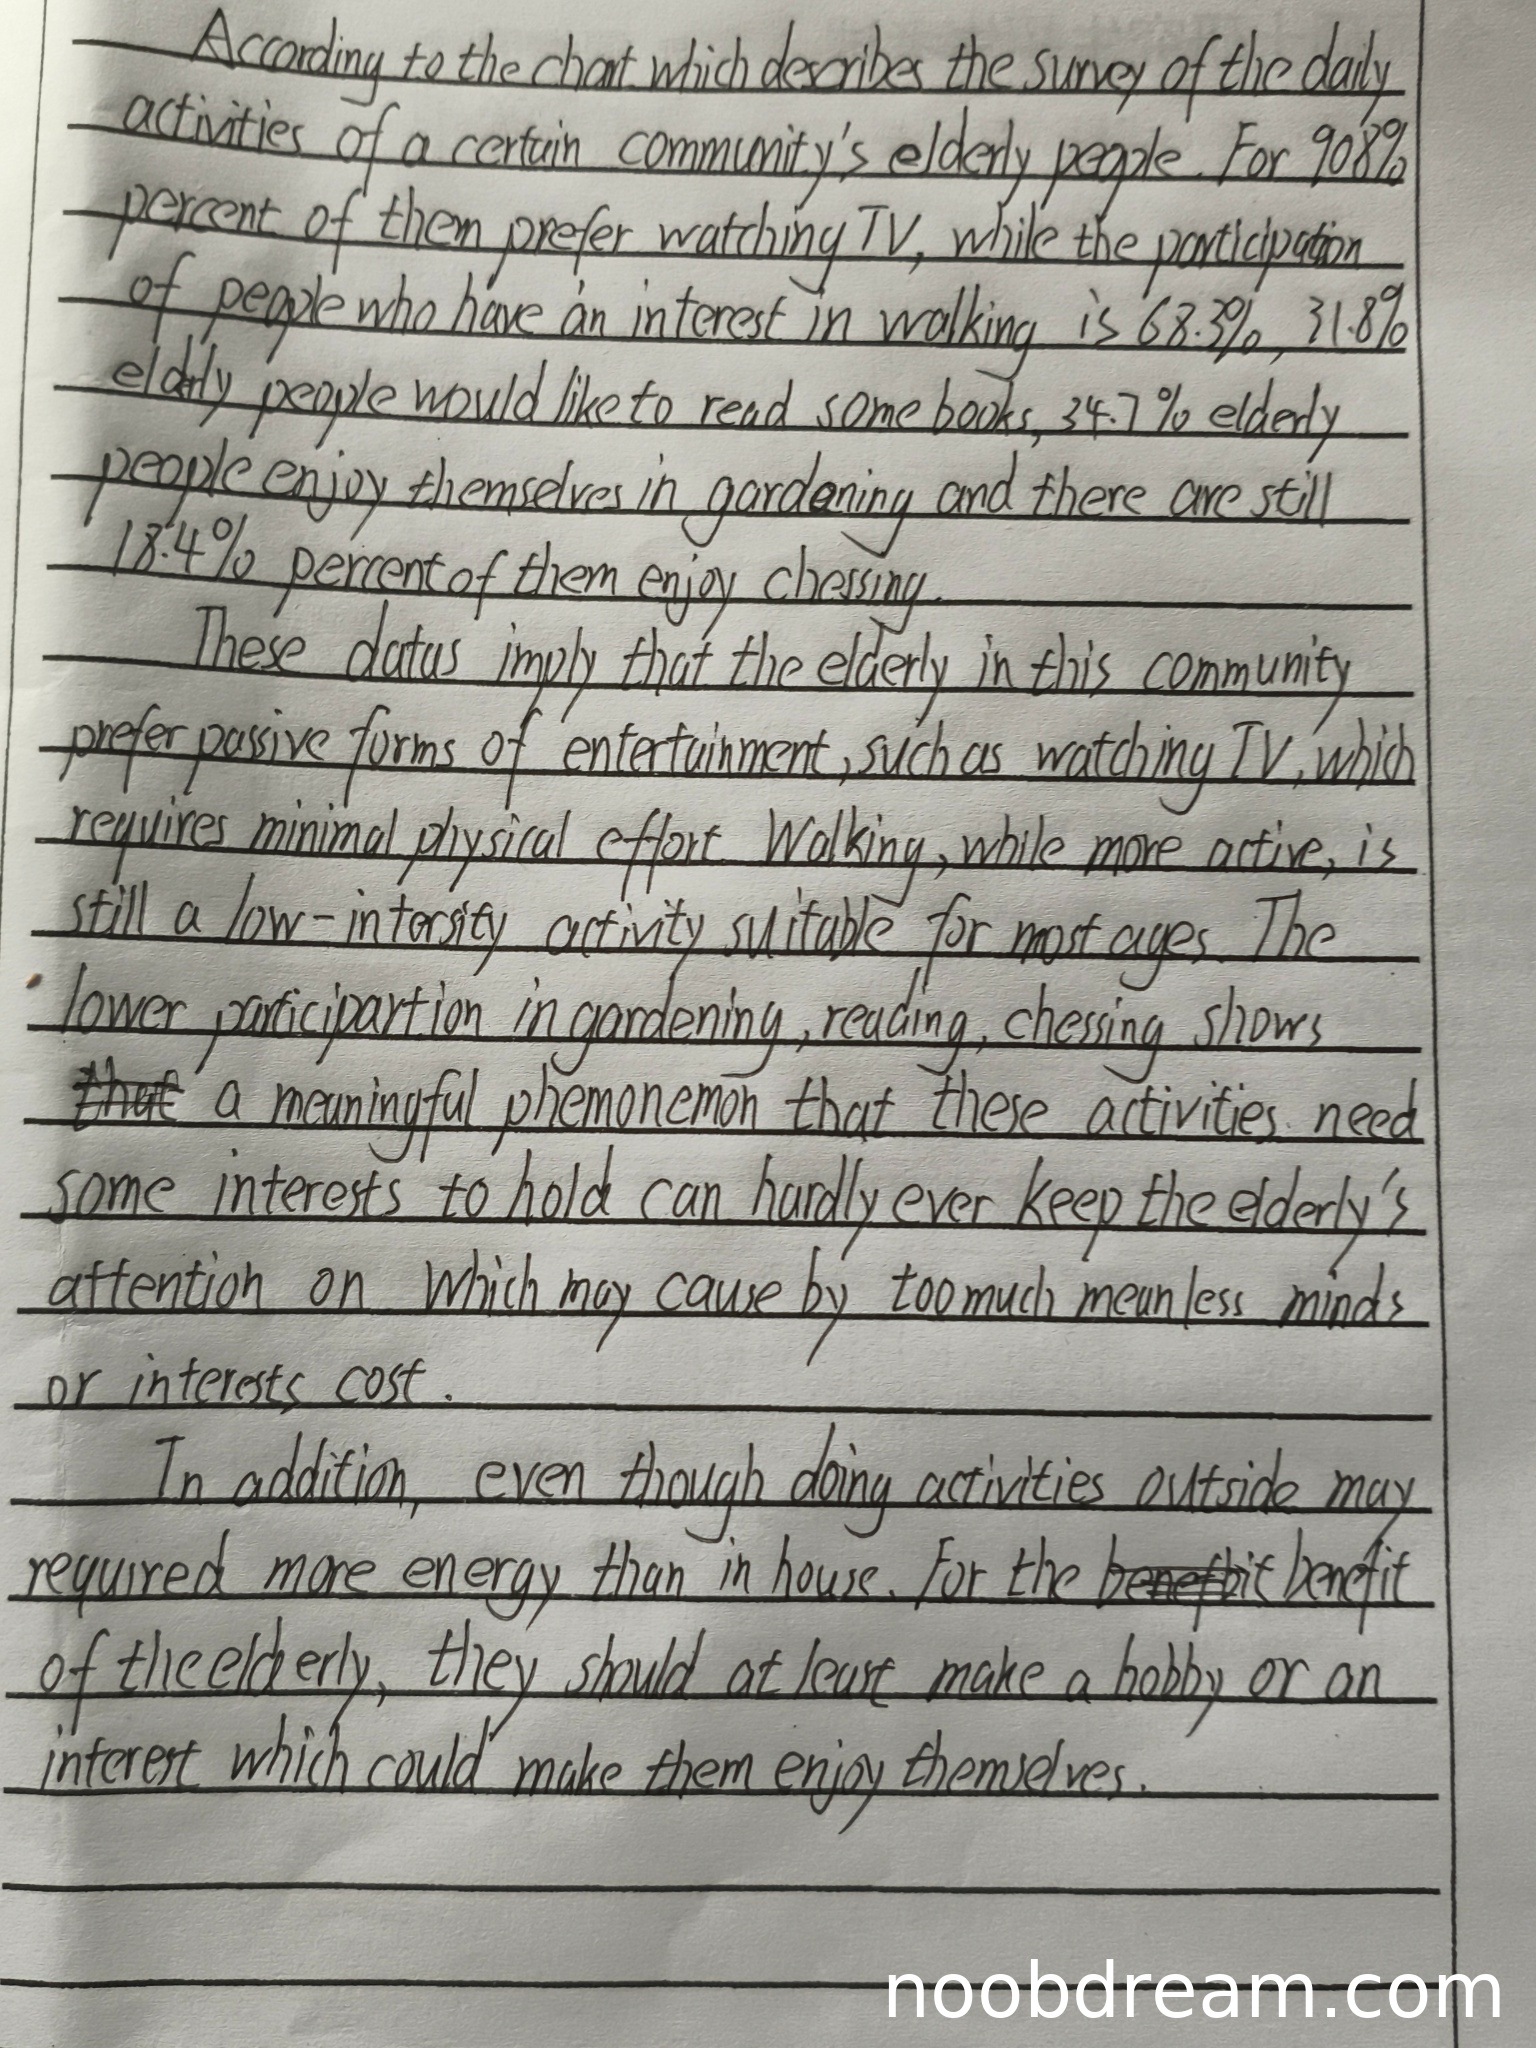 According to the chart which describes the survey of the daily
activities of a certain community's elderly people. For 90.8%
percent of them prefer watching TV, while the participation
of people who have an interest in walking is 68.3%, 31.8%
elderly people would like to read some books, 34.7% elderly
people enjoy themselves in gardening and there are still
18.4% percent of them enjoy chessing.
These datas imply that the elderly in this community
prefer passive forms of entertainment, such as watching TV, which
requires minimal physical effort. Walking, while more active, is
still a low-intersity activity suitable for most ages. The
lower participartion in gardening, reading, chessing shows
that a meaningful phemonemon that these activities need
some interests to hold can hardly ever keep the elderly's
attention on which may cause by too much meanless minds
or interests cost.
In addition, even though doing activities outside may
required more energy than in house. For the benefit
of the elderly, they should at least make a hobby or an
interest which could make them enjoy themselves.
noobdream.com